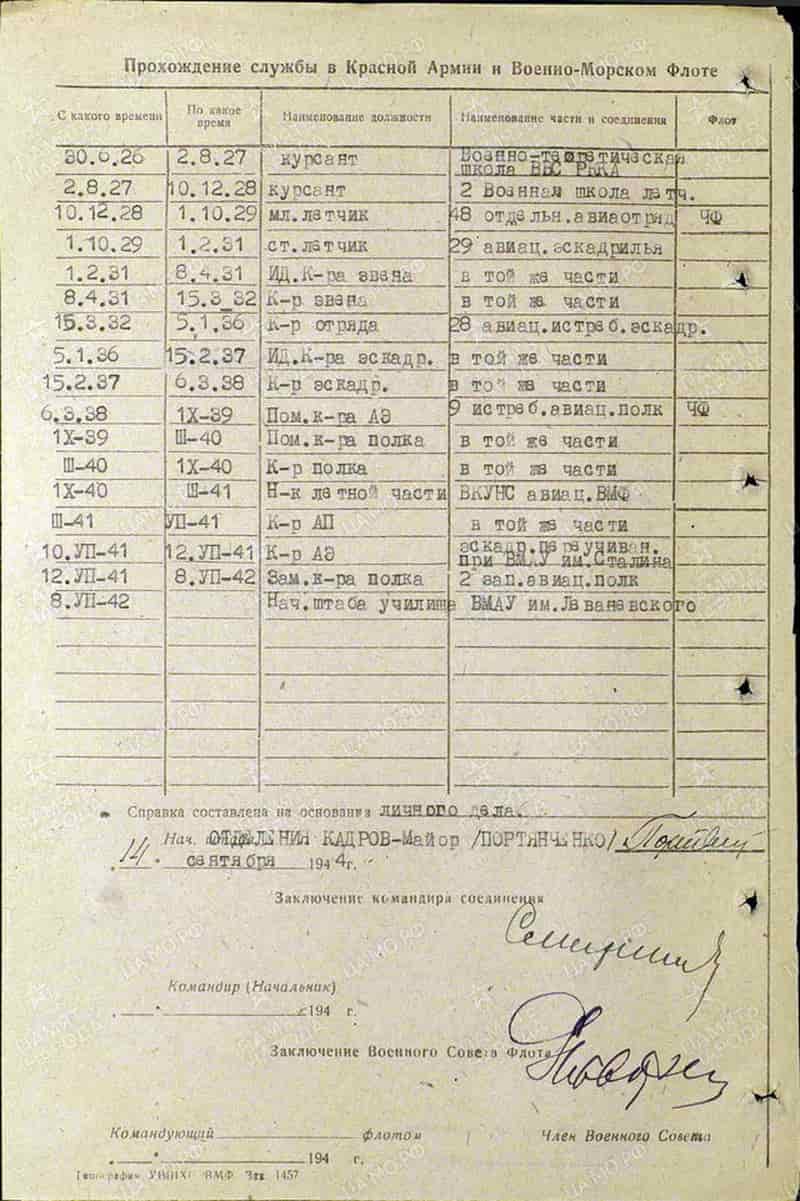 Прохождение службы в Красной Армии и Военно-Морском Флоте
С какого времени По какое время Наименование должности Наименование части и соединения Флот
30.6.26 2.8.27 курсант Военно-теоретическая школа ВВС РККА
2.8.27 10.12.28 курсант 2 Военная школа летч.
10.12.28 1.10.29 мл.летчик 48 отдельн.авиаотряд ЧФ
1.10.29 1.2.31 ст.летчик 29 авиац.эскадрилья
1.2.31 8.4.31 ИД.К-ра звена в той же части
8.4.31 15.3_32 К-р звена в той же части
15.3.32 5.1.36 К-р отряда 28 авиац.истреб.эскадр.
5.1.36 15.2.37 ИД.К-ра эскадр. в той же части
15.2.37 6.3.38 К-р эскадр. в той же части
6.3.38 1Х-39 Пом.к-ра АЭ 9 истреб.авиац.полк ЧФ
1Х-39 Ш-40 Пом.к-ра полка в той же части
Ш-40 1Х-40 К-р полка в той же части
1Х-40 Ш-41 Н-к летной части ВКУНС авиац.ВМФ
Ш-41 УП-41 К-р АП в той же части
10.УП-41 12.УП-41 К-р АЭ эскадр.переучиван. при ВМАУ им.Сталина
12.УП-41 8.УП-42 Зам.к-ра полка 2 зап.авиац.полк
8.УП-42 Нач.штаба училища ВМАУ им.Леваневского
Справка составлена на основании личного дела.
Нач. ОТДЕЛЕНИЯ КАДРОВ-Майор /ПОРТЯНЧЕНКО/
14 сентября 1944г.
Заключение командира соединения
Командир (Начальник)
194 г.
Заключение Военного Совета Флота
Командующий флотом Член Военного Совета
194 г.
Типография УВМИ ВМФ Зак 1457
ЦАМО.РФ